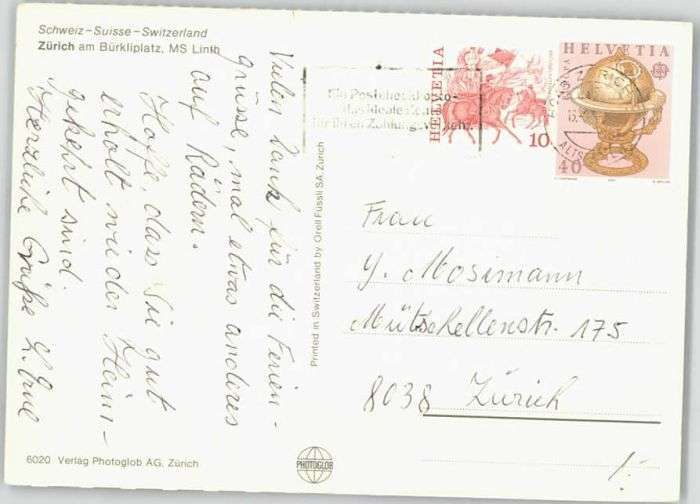 Schweiz-Suisse-Switzerland
Zürich am Bürkliplatz, MS Linth
Vielen Dank für die Ferien-
grüsse, mal etwas anderes
auf Rädern.
Hoffe, dass Sie gut
erholt wieder Heim-
gekehrt sind.
Herzliche Grüße
6020 Verlag Photoglob AG, Zürich
Printed in Switzerland by Orell Füssli SA Zürich
PHOTOGLOB
Ein Postcheckkonto -
das ideale
für Ihren Zahlungsverkehr.
HELVETIA
10
HELVETIA
EUROPA
40
Frau
Y. Mosimann
Mütschellenstr. 175
8038 Zürich